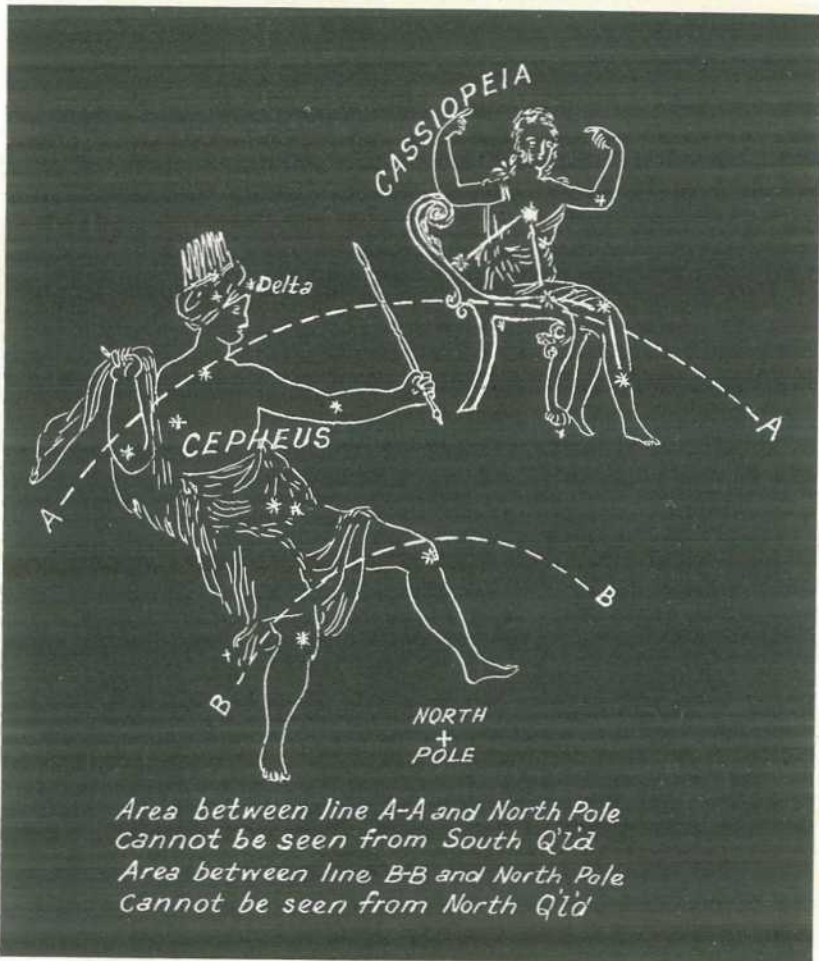 CASSIOPEIA
Delta
CEPHEUS
A
A
B
B
NORTH
+
POLE
Area between line A-A and North Pole
cannot be seen from South Q'ld
Area between line B-B and North Pole
cannot be seen from North Q'ld